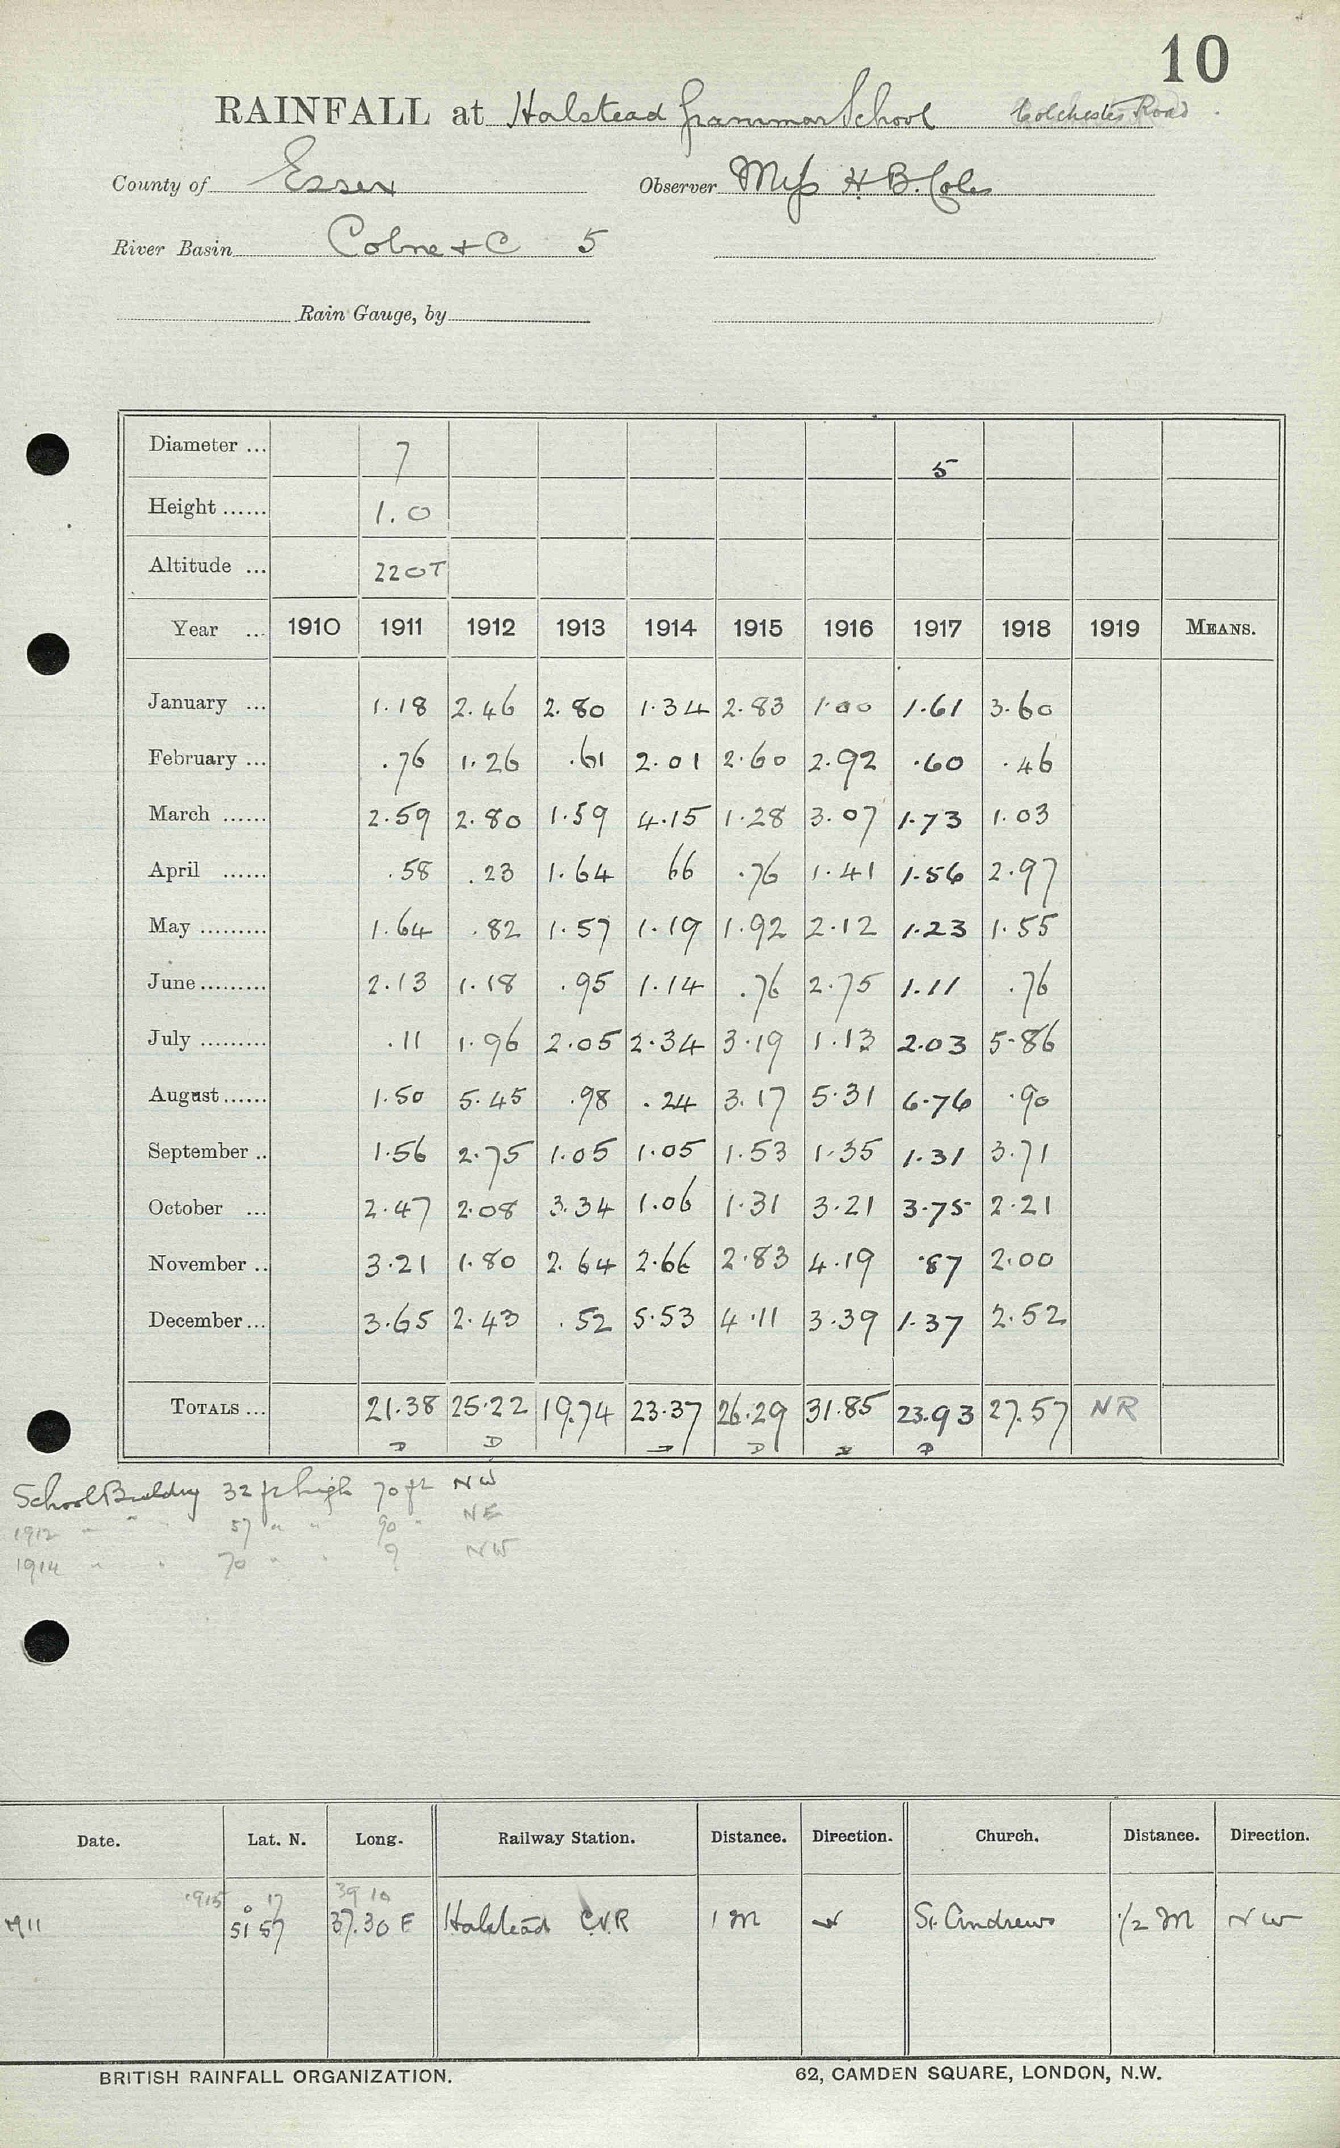 10
RAINFALL at Halstead Grammar School Colchester Road
County of Essex Observer Miss H B. Coles
River Basin Colne + C 5
Rain Gauge, by
Diameter ... 7 5
Height ...... 1.0
Altitude ... 220T
Year ... 1910 1911 1912 1913 1914 1915 1916 1917 1918 1919 MEANS.
January ... 1.18 2.46 2.80 1.34 2.83 1.00 1.61 3.60
February ... .76 1.26 .61 2.01 2.60 2.92 .60 .46
March ...... 2.59 2.80 1.59 4.15 1.28 3.07 1.73 1.03
April ...... .58 .23 1.64 66 .76 1.41 1.56 2.97
May ......... 1.64 .82 1.57 1.19 1.92 2.12 1.23 1.55
June ......... 2.13 1.18 .95 1.14 .76 2.75 1.11 .76
July ......... .11 1.96 2.05 2.34 3.19 1.13 2.03 5.86
August ...... 1.50 5.45 .98 .24 3.17 5.31 6.76 .90
September .. 1.56 2.75 1.05 1.05 1.53 1.35 1.31 3.71
October ... 2.47 2.08 3.34 1.06 1.31 3.21 3.75 2.21
November .. 3.21 1.80 2.64 2.66 2.83 4.19 .87 2.00
December ... 3.65 2.43 .52 5.53 4.11 3.39 1.37 2.52
TOTALS ... 21.38 25.22 19.74 23.37 26.29 31.85 23.93 27.57 NR
D D D D D D
School Building 32 ft high 70 ft NW
1912 " " " 57 " " 90 " NE
1914 " " 70 " " 9 NW
Date. Lat. N. Long. Railway Station. Distance. Direction. Church. Distance. Direction.
1915 17 39 10
1911 51° 57 37.30 E Halstead C.V.R 1 M W St. Andrews 1/2 M NW
BRITISH RAINFALL ORGANIZATION. 62, CAMDEN SQUARE, LONDON, N.W.